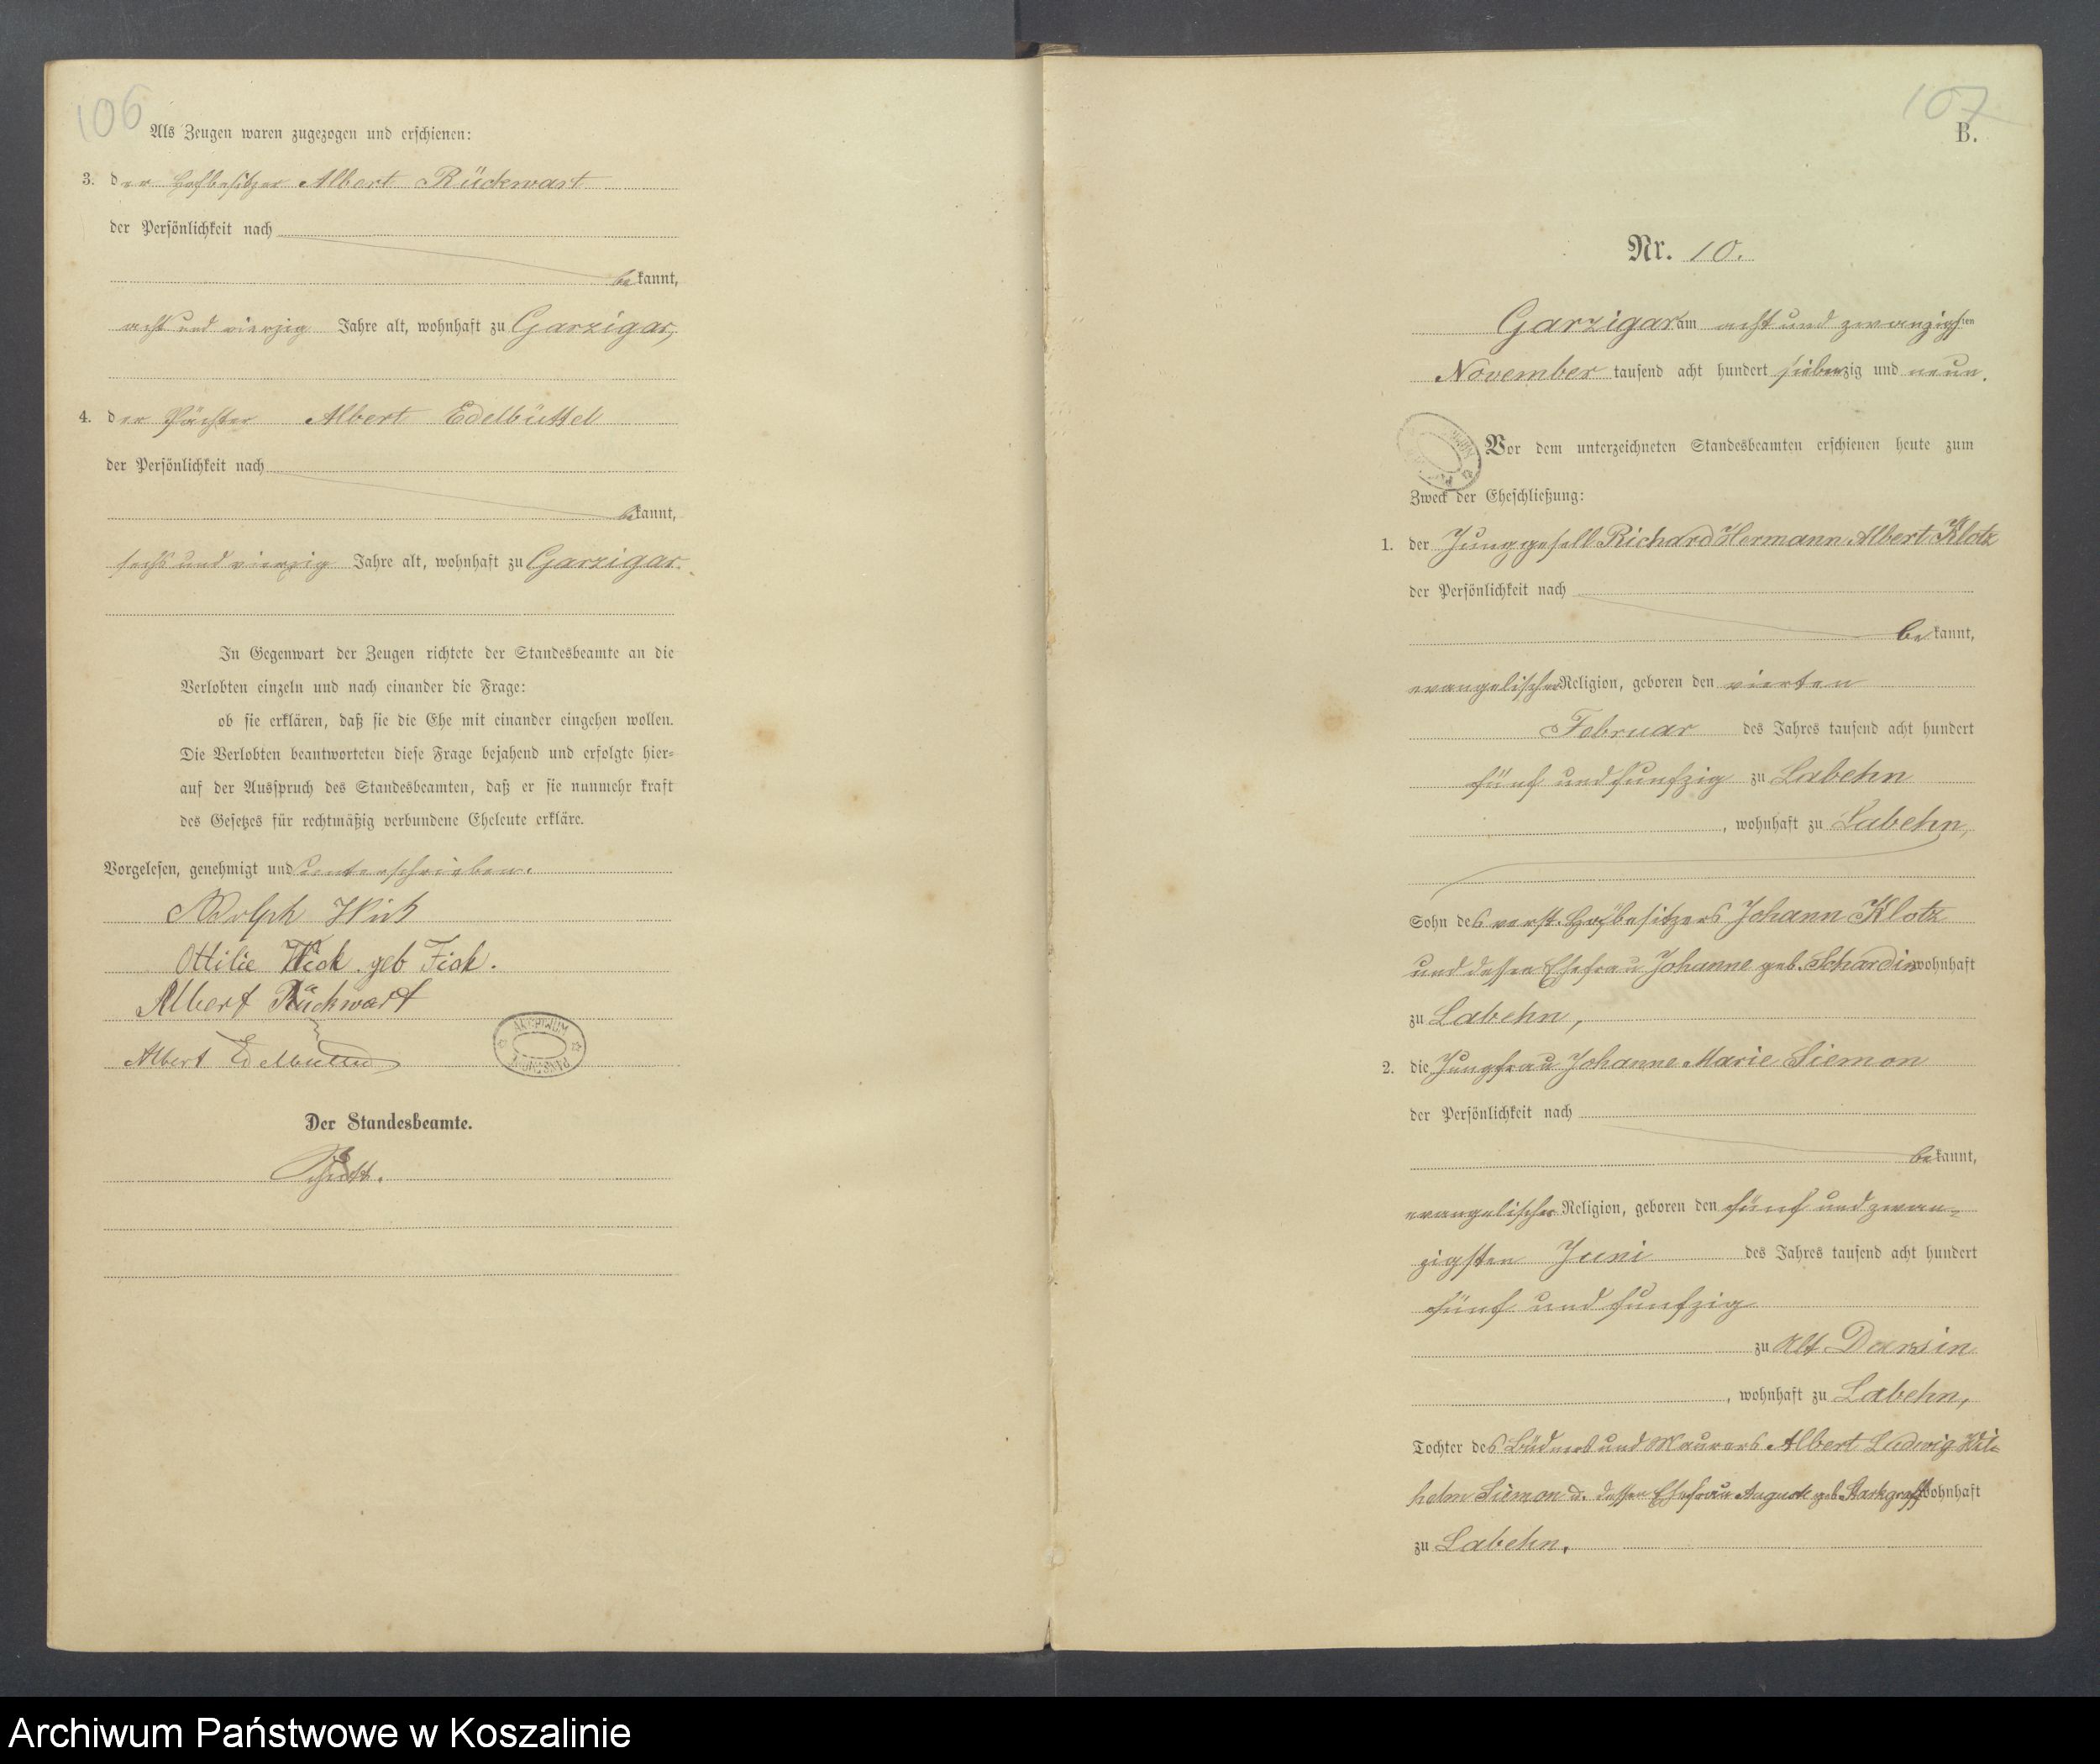 106
Als Zeugen waren zugezogen und erschienen:
3. der Hofbesitzer Albert Rückwart
der Persönlichkeit nach
bekannt,
acht und vierzig Jahre alt, wohnhaft zu Garzigar,
4. der Pächter Albert Edelbüttel
der Persönlichkeit nach
bekannt,
sechs und vierzig Jahre alt, wohnhaft zu Garzigar.
In Gegenwart der Zeugen richtete der Standesbeamte an die
Verlobten einzeln und nach einander die Frage:
ob sie erklären, daß sie die Ehe mit einander eingehen wollen.
Die Verlobten beantworteten diese Frage bejahend und erfolgte hier-
auf der Ausspruch des Standesbeamten, daß er sie nunmehr kraft
des Gesetzes für rechtmäßig verbundene Eheleute erkläre.
Vorgelesen, genehmigt und unterschrieben.
Adolph Wick
Ottilie Wick. geb Fick.
Albert Rückwart
Albert Edelbüttel
ARCHIWUM
Der Standesbeamte.
107
B.
Nr. 10.
Garzigar am acht und zwanzigsten
November tausend acht hundert siebenzig und neun.
Vor dem unterzeichneten Standesbeamten erschienen heute zum
Zweck der Eheschließung:
1. der Junggesell Richard Hermann Albert Klotz
der Persönlichkeit nach
bekannt,
evangelischer Religion, geboren den vierten
Februar des Jahres tausend acht hundert
fünf und funfzig zu Labehn
, wohnhaft zu Labehn,
Sohn des verst. Hofbesitzers Johann Klotz
und dessen Ehefrau Johanne geb. Schardin wohnhaft
zu Labehn,
2. die Jungfrau Johanne Marie Siemon
der Persönlichkeit nach
bekannt,
evangelischer Religion, geboren den fünf und zwan-
zigsten Juni des Jahres tausend acht hundert
fünf und funfzig
zu Alt Darsin
, wohnhaft zu Labehn,
Tochter des Büdners und Maurers Albert Ludwig Wil-
helm Siemon u. dessen Ehefrau Auguste geb. Starkgraff wohnhaft
zu Labehn.
Archiwum Państwowe w Koszalinie